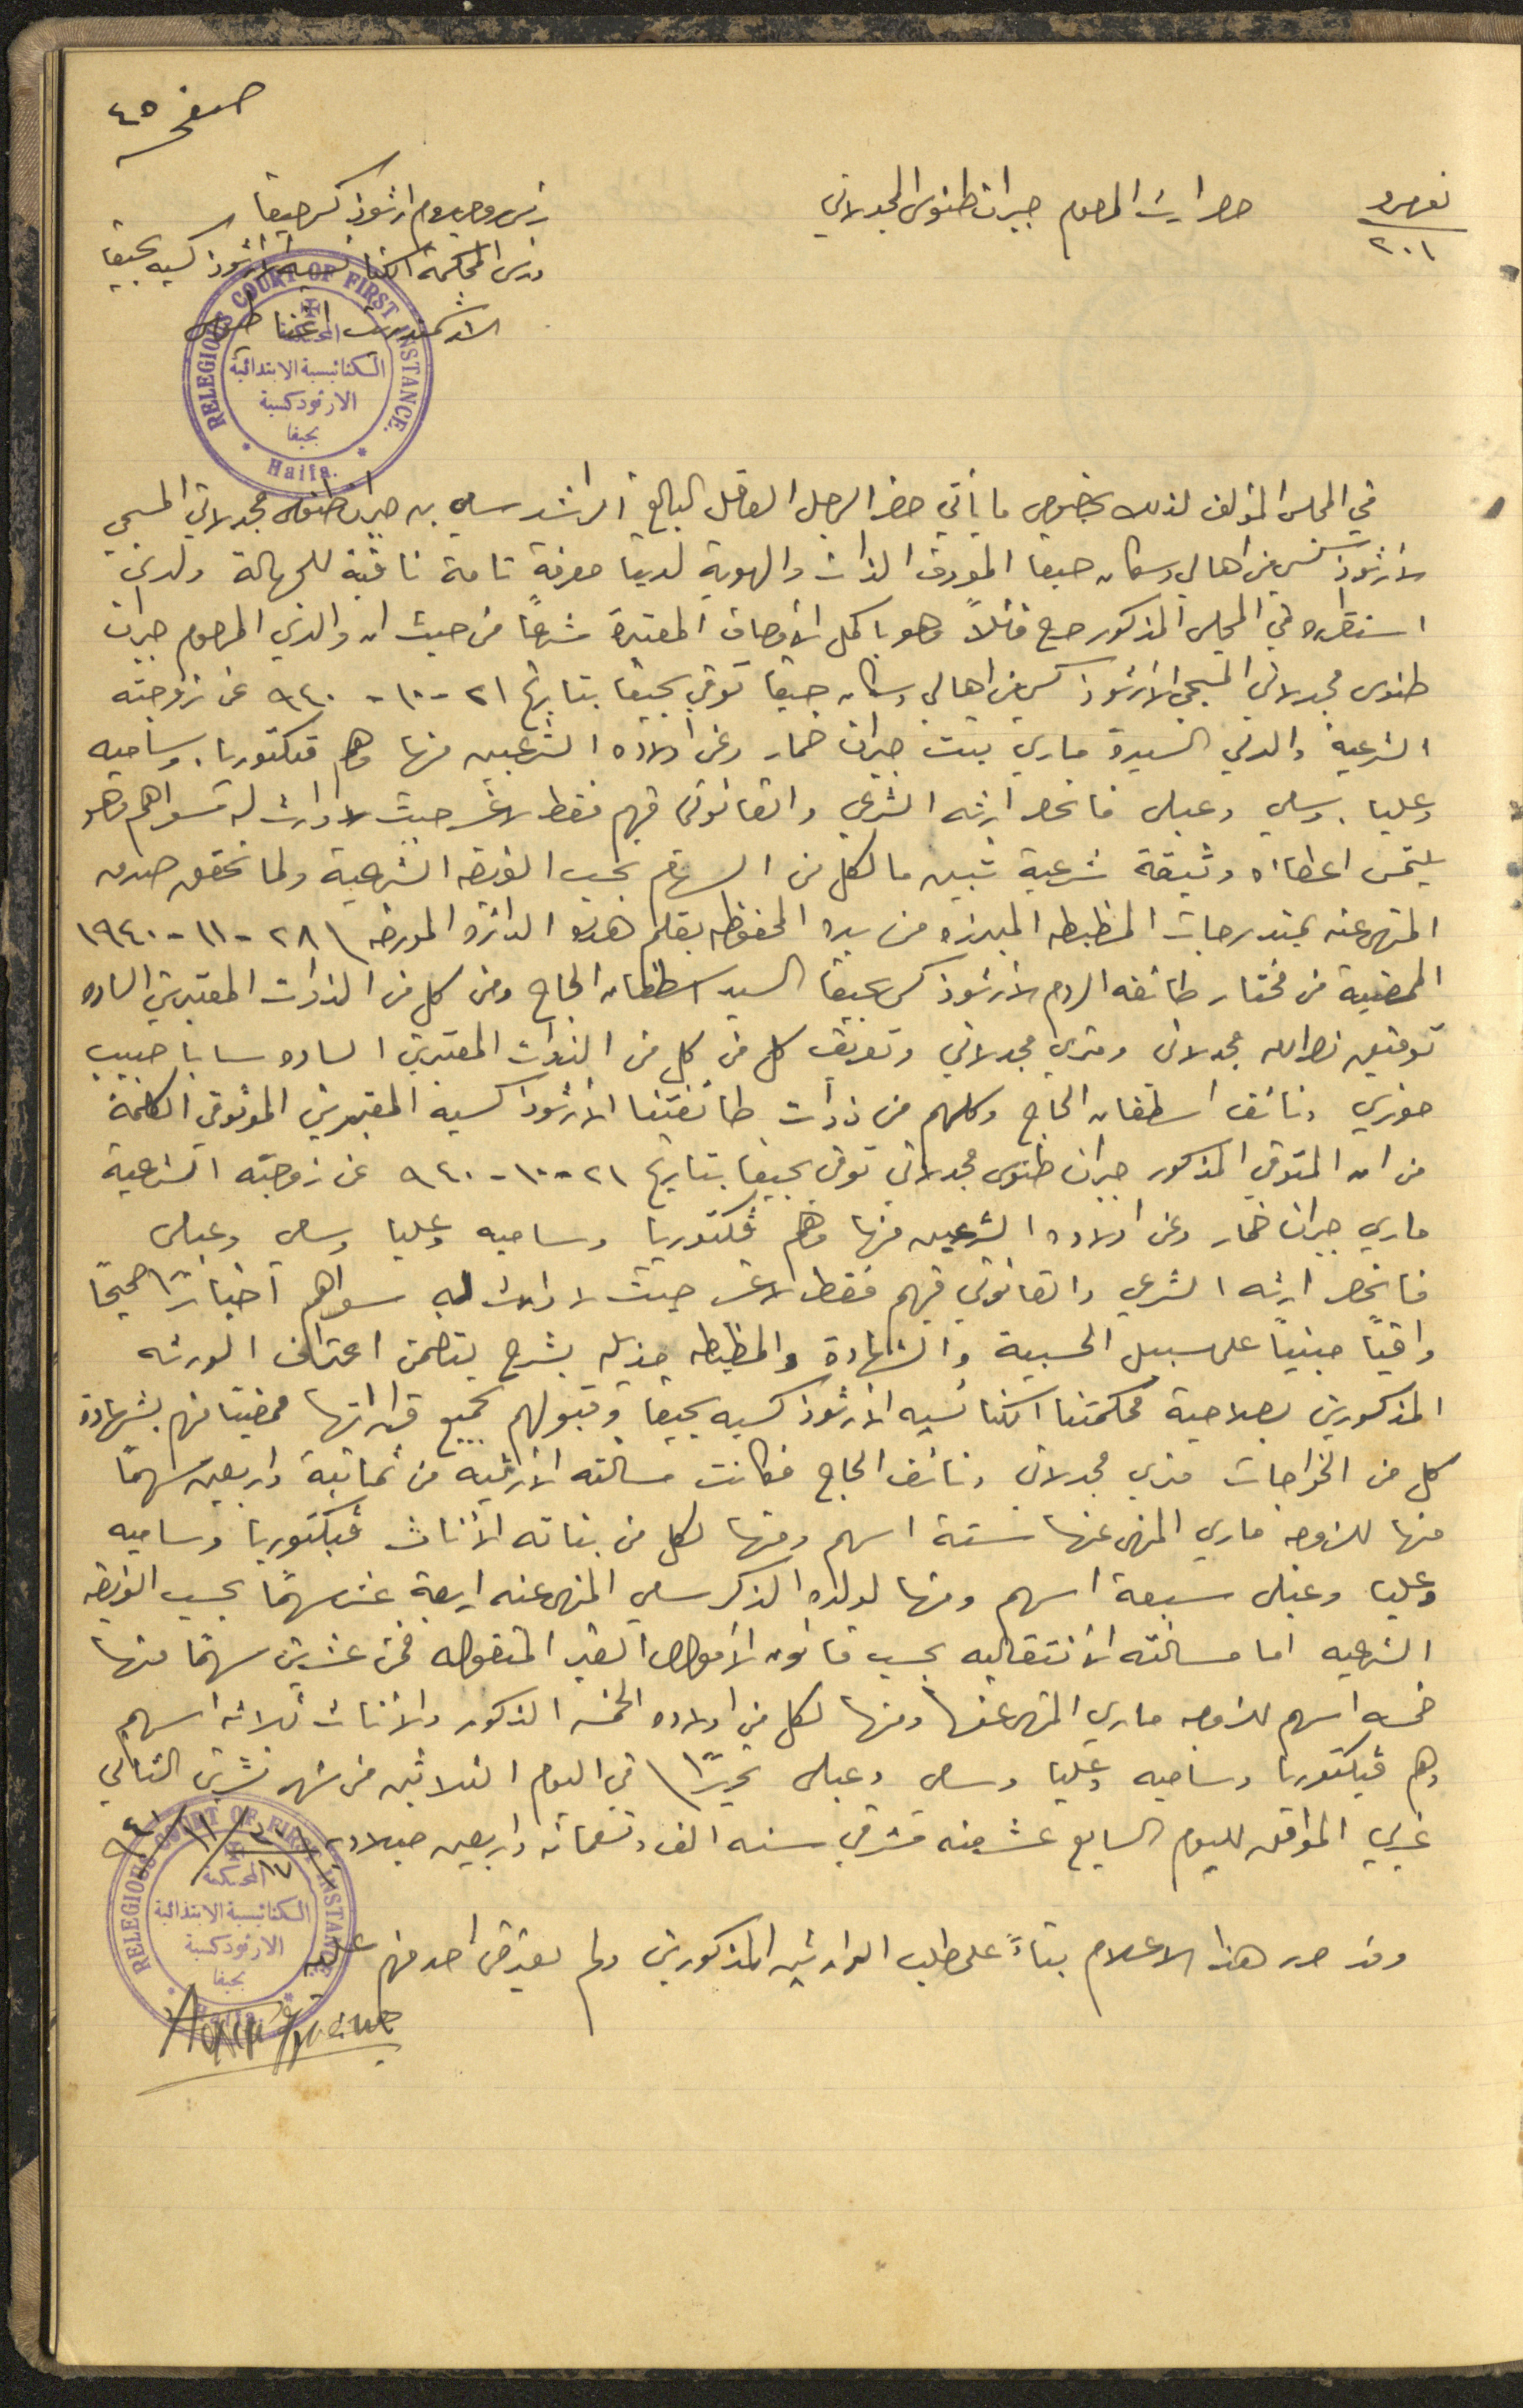 صفحه ٤٥
نمره
٢٠١
حصر ارث المرحوم جبران طنوس المجدلاني
رئيس روحي روم ارثوذكس حيفا
ورئيس المحكمة الكنائسية الارثوذكسيه بحيفا
الارشمندريت
RELEGIOUS COURT OF FIRST INSTANCE.
المحكمة
الكنائيسية الابتدائية
الارثودكسية
بحيفا
Haifa.
في المجلس المؤلف لذلك بخصوص ما يأتي حضر الرجل العاقل البالغ الراشد سامي بن جبران طنوس مجدلاني المسيحي
الارثوذكسي من اهالي وسكان حيفا المعروف الذات والهوية لدينا معرفة تامة نافية للجهالة ولدى
استقراره في المجلس المذكور صرح قائلاً وهو باكمل الأوصاف المعتبرة شرعاً من حيث ان والدي المرحوم جبران
طنوس مجدلاني المسيحي الارثوذكسي من اهالي وسكان حيفا توفي بحيفا بتاريخ ٢١-١٠-٩٤٠ عن زوجته
الشرعية والدتي السيدة ماري بنت جبران خمار وعن اولاده الشرعيين منها وهم فكتوريا. وساميه
وعليا. وسامي وعبلى فانحصر ارثه الشرعي والقانوني فيهم فقط لاغير حيث لا وارث له سواهم وهو
يلتمس اعطاءه وثيقة شرعية تبين ما لكل من السهام بحسب الفريضه الشرعية ولما تحقق صدق
المنهى عنه بمندرجات المظبطه المبرزه من يده المحفوظه بقلم هذه الدائره المورخه ٢٨-١١-١٩٤٠
الممضية من مختار طائفة الروم الارثوذكس بحيفا السيد اسطفان الحاج ومن كل من الذوات المعتبرين الساده
توفيق نصرالله مجدلاني ومتري مجدلاني وتعريف كل من كل من الذوات المعتبرين الساده سابا حبيب
خوري ونائف اسطفان الحاج وكلهم من ذوات طائفتنا الارثوذكسيه المعتبرين الموثوقي الكلمة
من ان المتوفي المذكور جبران طنوس مجدلاني توفى بحيفا بتاريخ ٢١-١٠-٩٤٠ عن زوجته الشرعية
ماري جبران خمار وعن اولاده الشرعيين منها وهم فكتوريا وساميه وعليا وسامي وعبلى
فانحصر ارثه الشرعي والقانوني فيهم فقط لاغير حيث لا وارث له سواهم اخباراً صحيحاً
وافياً مبنياً على سبيل الحسبية والشهادة والمظبطه مذيله بشرح يتضمن اعتراف الورثه
المذكورين بصلاحية محكمتنا الكنائسيه الارثوذكسيه بحيفا وقبولهم بجميع قراراتها ممضيا منهم بشهادة
كل من الخواجات متري مجدلاني ونائف الحاج فكانت مسألته الأرثيه من ثمانية واربعين سهماً
منها للزوجه ماري المنهى عنها ستة اسهم ومنها لكل من بناته الأناث فيكتوريا وساميه
وعليا وعبلى سبعة اسهم ومنها لولده الذكر سامي المنهى عنه اربعة عشر سهماً بحسب الفريضه
الشرعيه اما مسألته الأنتقاليه بحسب قانون الأموال الغير المنقوله فمن عشرين سهماً منها
خمسه اسهم للزوجه ماري المنهى عنها ومنها لكل من اولاده الخمسه الذكور والأناث ثلاثه اسهم
وهم فيكتوريا وساميه وعليا وسامي وعبلى تحريراً في اليوم الثلاثين من شهر تشرين الثاني
غربي الموافق لليوم السابع عشر منه شرقي سنه الف وتسعمائه واربعين ميلاديه ٣٠/١٧/١١/٩٤٠
RELEGIOUS COURT OF FIRST INSTANCE.
المحكمة
الكنائيسية الابتدائية
الارثودكسية
بحيفا
Haifa.
وقد صدر هذا الاعلام بناءً على طلب الوارثين المذكورين ولم يعترض احد منهم عليه